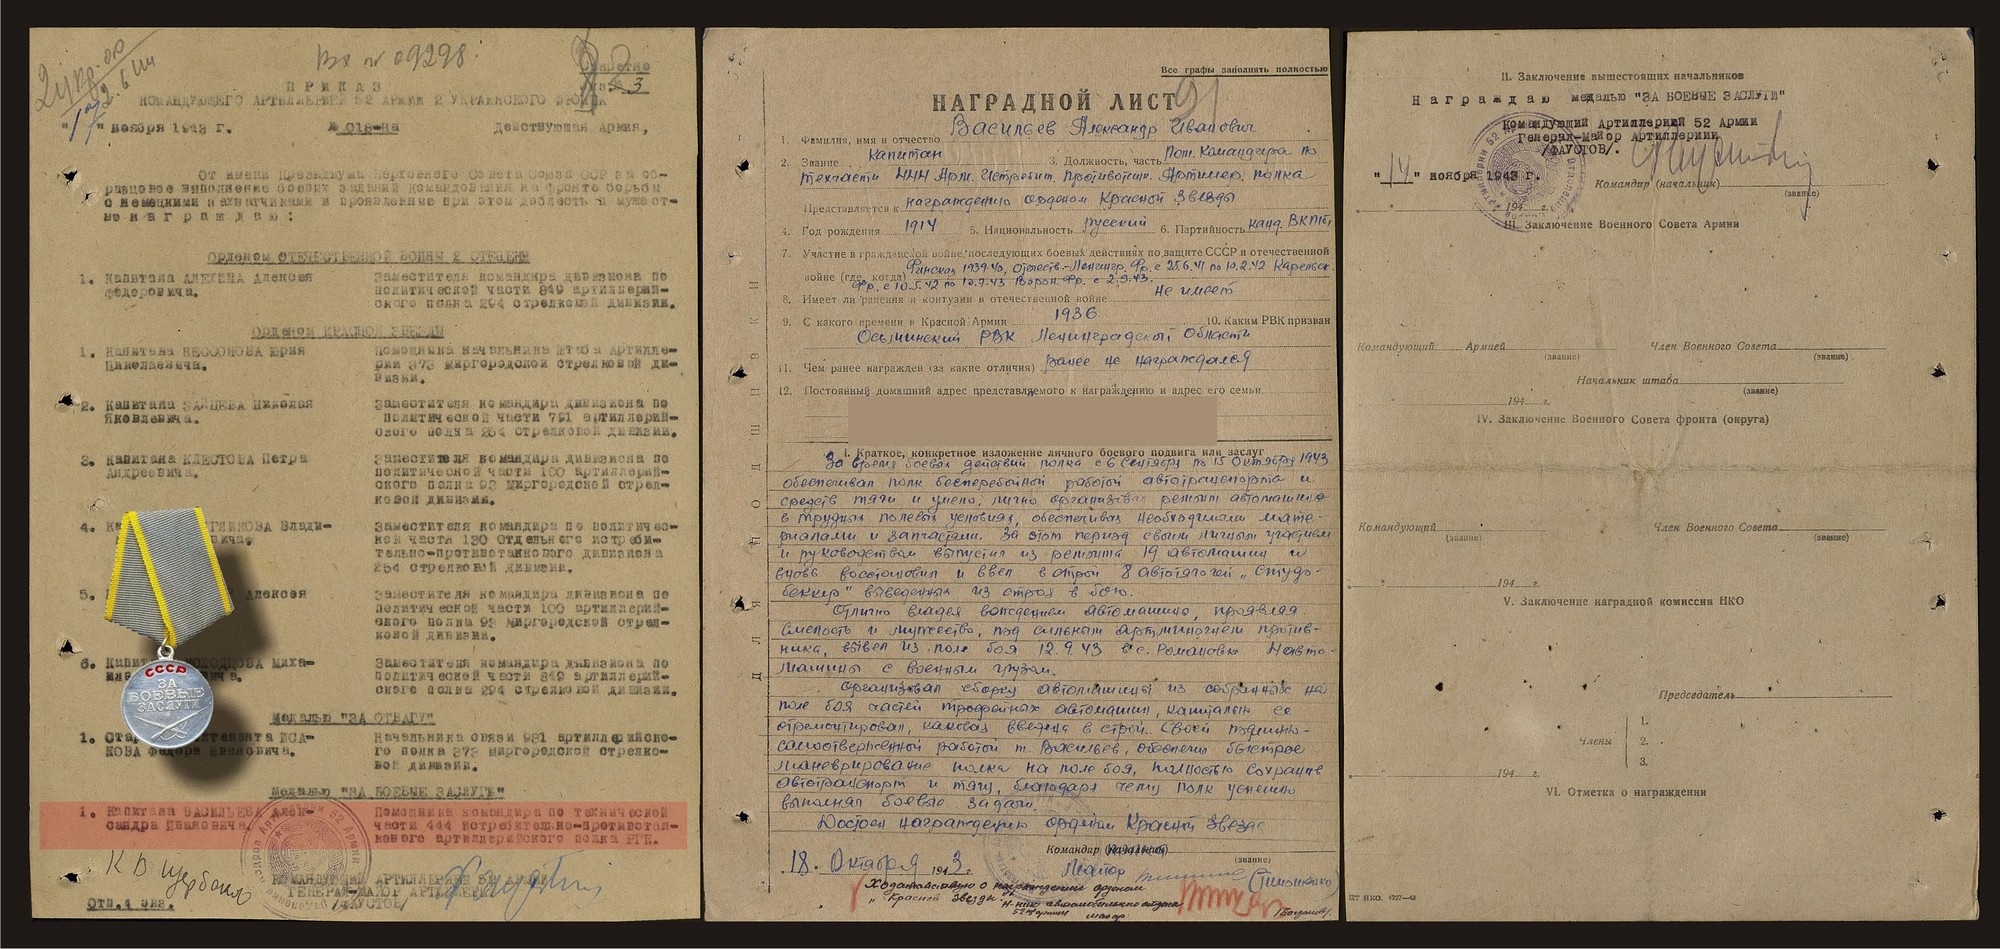 Вх № 09298.
Секретно
Экз. 3
ПРИКАЗ
КОМАНДУЮЩЕГО АРТИЛЛЕРИЕЙ 52 АРМИИ 2 УКРАИНСКОГО ФРОНТА
"17" ноября 1943 г. № 018-на Действующая Армия,
От имени Президиума Верховного Совета Союза ССР за об-
разцовое выполнение боевых заданий командования на фронте борьбы
с немецкими захватчиками и проявленные при этом доблесть и мужест-
во награждаю:
Орденом ОТЕЧЕСТВЕННОЙ ВОЙНЫ 2 СТЕПЕНИ
1. Капитана АЛЕХИНА Алексея Заместителя командира дивизиона по
Федоровича. политической части 849 артиллерий-
ского полка 294 стрелковой дивизии.
Орденом КРАСНОЙ ЗВЕЗДЫ
1. Капитана БЕССОНОВА Юрия Помощника начальника Штаба Артилле-
Николаевича. рии 373 Миргородской стрелковой ди-
визии.
2. Капитана ЗАЙЦЕВА Николая Заместителя командира дивизиона по
Яковлевича. политической части 791 артиллерий-
ского полка 254 стрелковой дивизии.
3. Капитана КЛЕСТОВА Петра Заместителя командира дивизиона по
Андреевича. политической части 100 артиллерий-
ского полка 93 Миргородской стрел-
ковой дивизии.
4. Влади- Заместителя командира по политичес-
кой части 130 Отдельного истреби-
тельно-противотанкового дивизиона
254 стрелковой дивизии.
5. Алексея Заместителя командира дивизиона по
политической части 100 артиллерий-
ского полка 93 Миргородской стрел-
ковой дивизии.
6. Миха- Заместителя командира дивизиона по
политической части 849 артиллерий-
ского полка 294 стрелковой дивизии.
Медалью "ЗА ОТВАГУ"
1. ИСА- Начальника связи 931 артиллерийско-
КОВА Федора Ивановича. го полка 373 Миргородской стрелко-
вой дивизии.
Медалью "ЗА БОЕВЫЕ ЗАСЛУГИ"
1. Капитана ВАСИЛЬЕВА Алек- Помощника командира по технической
сандра Ивановича. части 444 истребительно-противотан-
кового артиллерийского полка РГК.
КОМАНДУЮЩИЙ АРТИЛЛЕРИЕЙ 52 АРМИИ
ГЕНЕРАЛ-МАЙОР АРТИЛЛЕРИИ
/ФАУСТОВ/
Отп. 4 экз.
СССР
ЗА
БОЕВЫЕ
ЗАСЛУГИ
ДЛЯ ПОДШИВКИ
Все графы заполнять полностью
НАГРАДНОЙ ЛИСТ
1. Фамилия, имя и отчество Васильев Александр Иванович
2. Звание капитан 3. Должность, часть Пом. Командира по
техчасти 444 Арм. Истребит. Противотанк. Артилер. полка
Представляется к награждению орденом Красной Звезды
4. Год рождения 1914 5. Национальность русский 6. Партийность канд. ВКП(б)
7. Участие в гражданской войне/последующих боевых действиях по защите СССР и отечественной
войне (где, когда) Финская 1939-40, Отечеств.-Ленингр. Фр. с 25.6.41 по 10.2.42 Карельск.
Фр. с 10.5.42 по 10.7.43 Ворон. Фр. с 2.9.43.
8. Имеет ли ранения и контузии в отечественной войне Не имеет
9. С какого времени в Красной Армии 1936 10. Каким РВК призван
Осьминский РВК Ленинградской Области
11. Чем ранее награжден (за какие отличия) Ранее не награждался
12. Постоянный домашний адрес представляемого к награждению и адрес его семьи
I. Краткое, конкретное изложение личного боевого подвига или заслуг
За время боевых действий полка с 6 Сентября по 15 Октября 1943
обеспечивал полк бесперебойной работой автотранспорта и
средств тяги и умело, лично организовал ремонт автомашин
в трудных полевых условиях, обеспечивая необходимыми мате-
риалами и запчастями. За этот период своим личным участием
и руководством выпустил из ремонта 19 автомашин и
вновь восстановил и ввел в строй 8 автотягачей „Студо-
беккер" выведенных из строя в бою.
Отлично владея вождением автомашины, проявляя
смелость и мужество, под сильным артминогнем против-
ника, вывел из поля боя 12.9.43 в с. Романовка 4 авто-
машины с военным грузом.
Организовал сборку автомашины из собранных на
поле боя частей трофейных автомашин, капитально её
отремонтировал, каковая введена в строй. Своей подлинно-
самоотверженной работой т. Васильев, обеспечил быстрое
маневрирование полка на поле боя, полностью сохранив
автотранспорт и тягу, благодаря чему полк успешно
выполнял боевые задачи.
Достоин награждению орденом Красной Звезда
Командир (начальник)
(звание)
18. Октября 1943 г. Майор (Тимоненко)
Ходатайствую о награждении орденом
„Красной Звезды" Н-ник автомобильного отдела
52 Армии майор /Богданов/
II. Заключение вышестоящих начальников
Награждаю медалью "ЗА БОЕВЫЕ ЗАСЛУГИ"
Командующий Артиллерией 52 Армии
Генерал-Майор Артиллерии
/ФАУСТОВ/.
"14" ноября 1943 г.
Командир (начальник)
(звание)
194 г.
III. Заключение Военного Совета Армии
Командующий Армией Член Военного Совета
(звание) (звание)
Начальник штаба
(звание)
194 г.
IV. Заключение Военного Совета фронта (округа)
Командующий Член Военного Совета
(звание) (звание)
194 г.
V. Заключение наградной комиссии НКО
Председатель
1.
Члены 2.
3.
194 г.
VI. Отметка о награждении